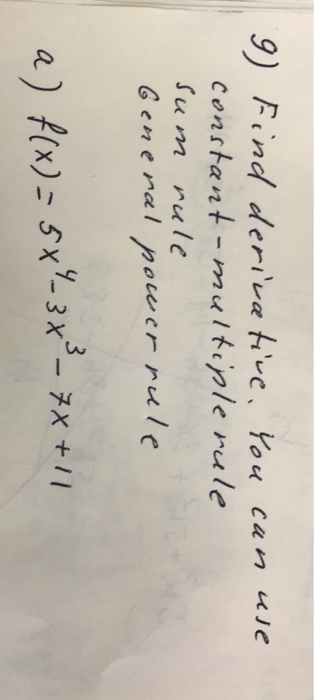 g) Find derivative. You can use
constant-multiple rule
Sum rule
General power rule
a) f(x) = 5x⁴ - 3x³ - 7x + 11